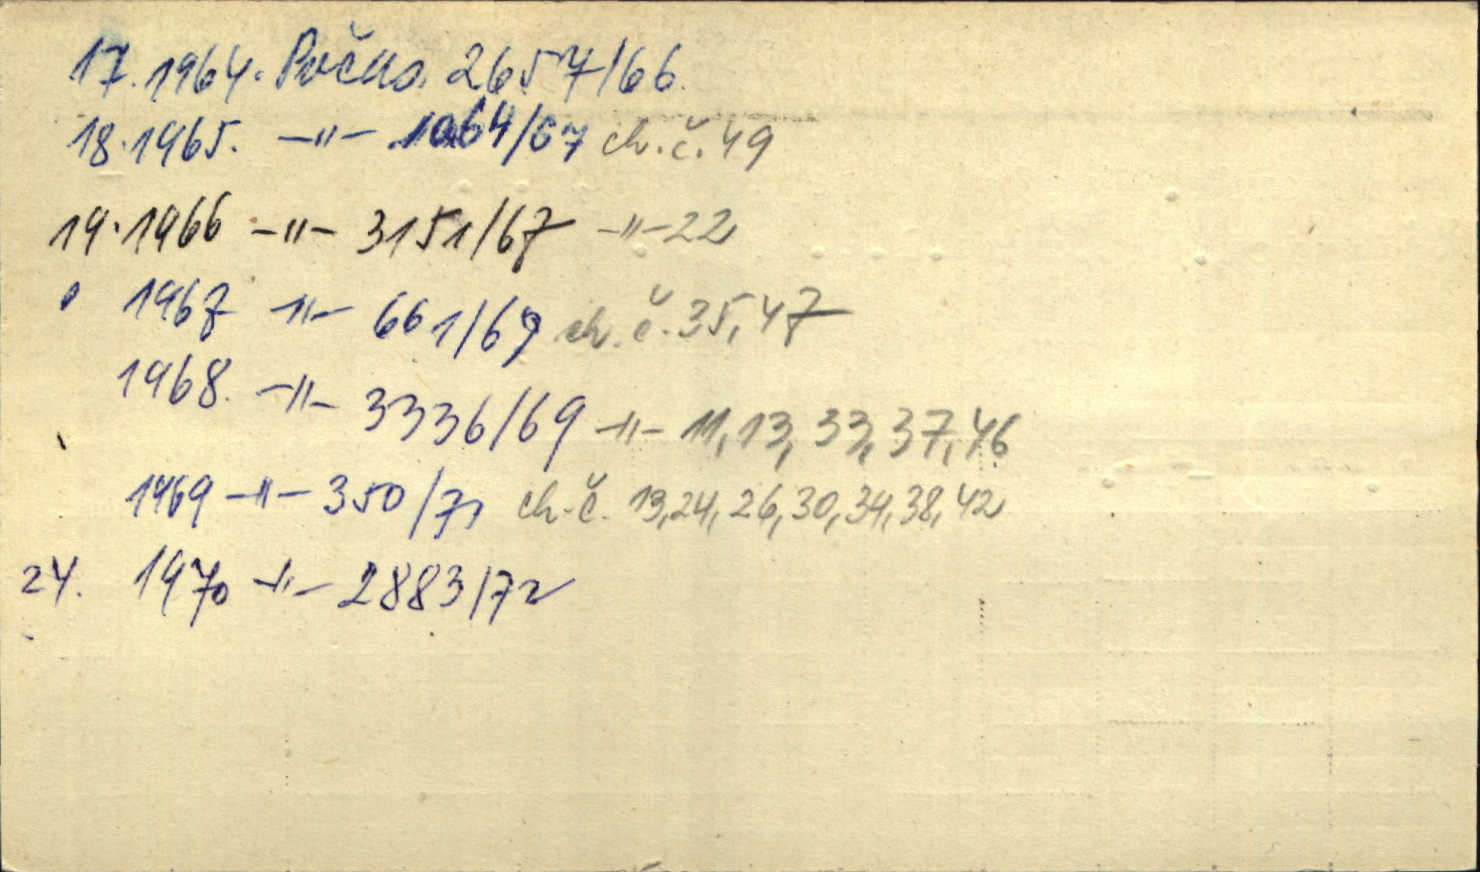 17. 1964. Pučka. 2657/66.
18. 1965. -"- 1064/67 ch. č. 49
19. 1966 -"- 3151/67 -"- 22
1967 -"- 661/69 ch. č. 35, 47
1968. -"- 3336/69 -"- 11, 13, 33, 37, 46
1969 -"- 350/71 ch. č. 13, 24, 26, 30, 34, 38, 42
24. 1970 -"- 2883/72